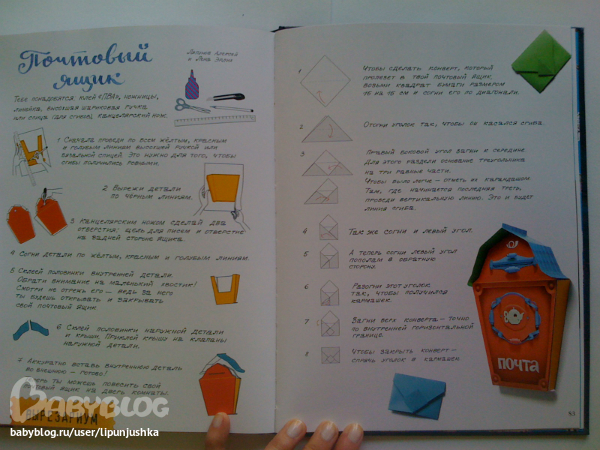 Почтовый
ящик
Тебе понадобятся клей «ПВА», ножницы,
линейка, высохшая шариковая ручка
или спица (для сгибов), канцелярский нож.
1 Сначала проведи по всем жёлтым, красным
и голубым линиям высохшей ручкой или
вязальной спицей. Это нужно для того, чтобы
сгибы получились ровными.
2 Вырежи детали
по чёрным линиям.
3 Канцелярским ножом сделай два
отверстия: щель для писем и отверстие
на задней стороне ящика.
4 Согни детали по жёлтым, красным и голубым линиям.
5 Склей половинки внутренней детали.
Обрати внимание на маленький хвостик!
Смотри не отрежь его – ведь за него
ты будешь открывать и закрывать
свой почтовый ящик
6 Склей половинки наружной детали
и крыши. Приклей крышу на клапаны
наружной детали.
7 Аккуратно вставь внутреннюю деталь
во внешнюю – готово!
Теперь ты можешь повесить свой
почтовый ящик на дверь комнаты
ВЫРЕЗАРИУМ
1 Чтобы сделать конверт, который
пролезет в твой почтовый ящик,
возьми квадрат бумаги размером
16 на 16 см и согни его по диагонали.
2 Отогни уголок так, чтобы он касался сгиба.
3 Правый боковой угол загни к середине.
Для этого раздели основание треугольника
на три равные части.
Там, где начинается последняя треть,
проведи вертикальную линию. Это и будет
линия сгиба.
4 Так же согни и левый угол.
5 А теперь согни левый угол
пополам в обратную
сторону.
6 Раскрой этот уголок
так, чтобы получился
кармашек.
7 Загни верх конверта – точно
по внутренней горизонтальной
границе.
8 Чтобы закрыть конверт –
спрячь уголок в кармашек
ПОЧТА
BABYBLOG
babyblog.ru/user/lipunjushka